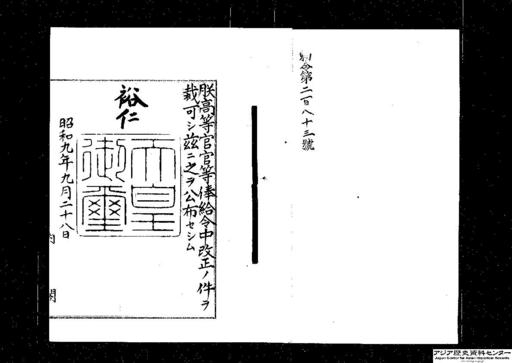 勅令第二百八十三號
朕高等官官等俸給令中改正ノ件ヲ
裁可シ茲ニ之ヲ公布セシム
裕仁
天皇御璽
昭和九年九月二十八日
内閣
アジア歴史資料センター
Japan Center for Asian Historical Records